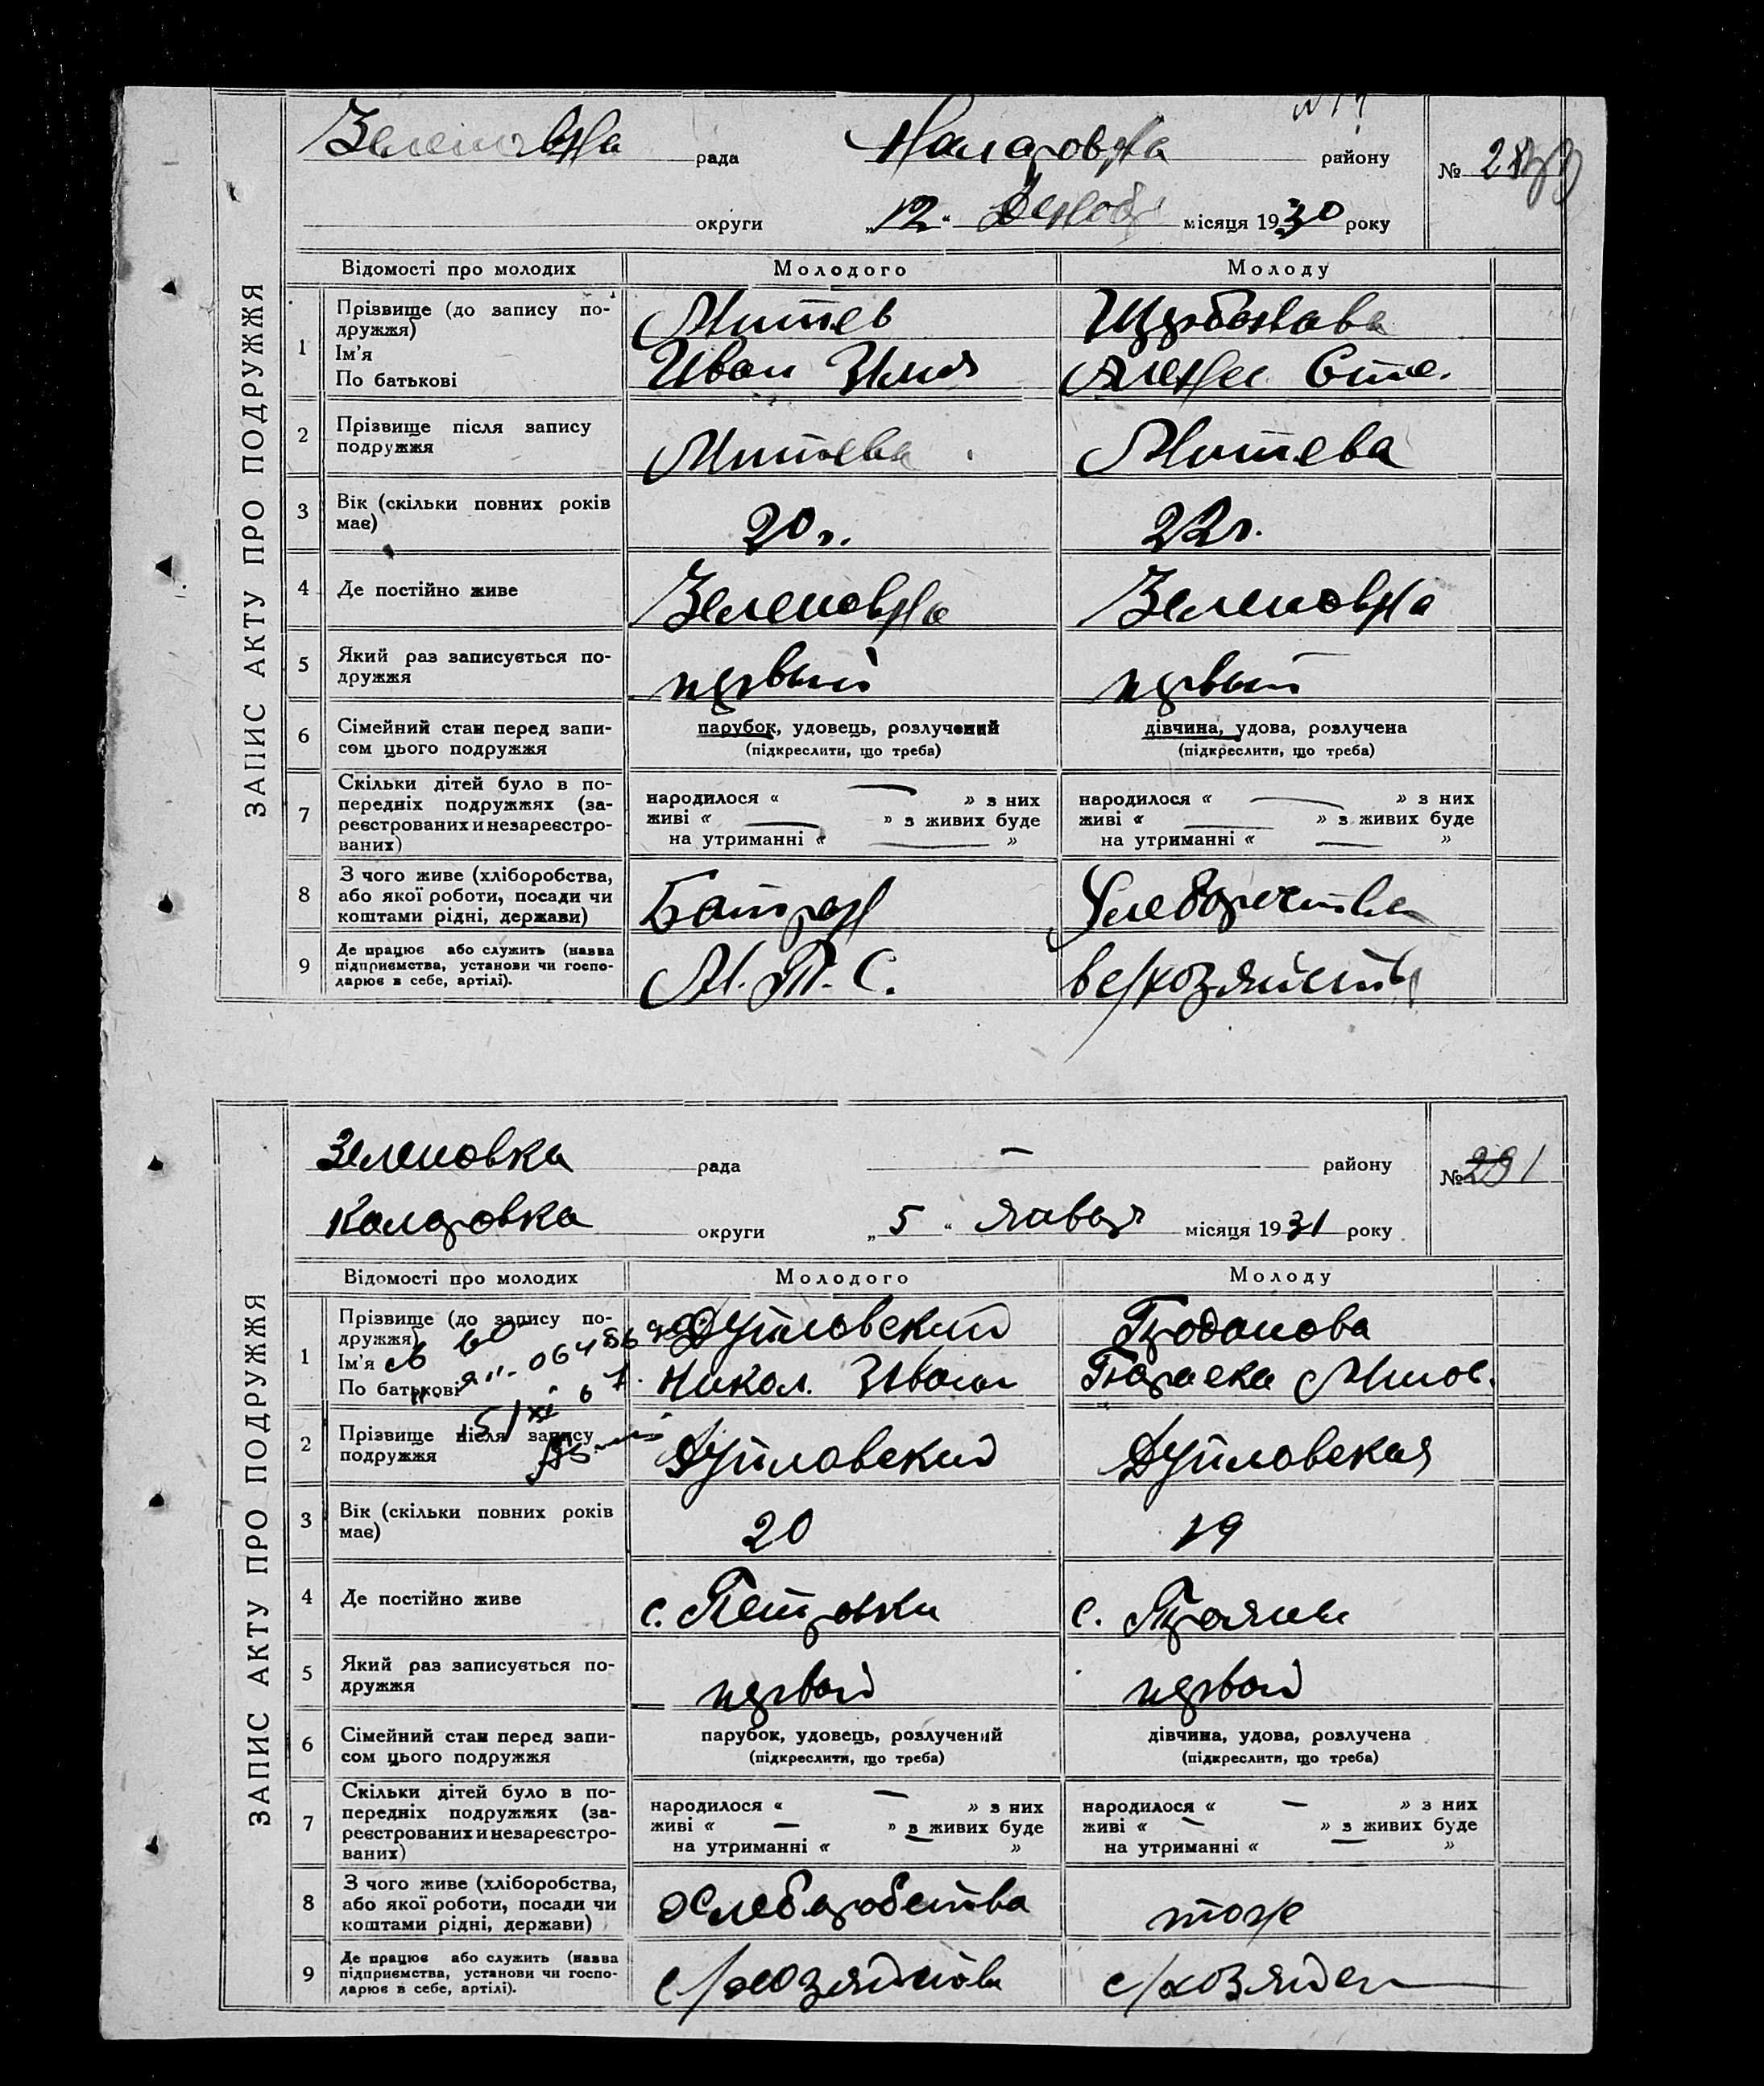 ЗАПИС АКТУ ПРО ПОДРУЖЖЯ
Зеленовка рада района району № 28
округи „12“ Декабр місяця 1930 року
Відомості про молодих Молодого Молоду
1 Прізвище (до запису по-
дружжя) Митев Щербакова
Ім'я
По батькові Иван Илия Сте.
2 Прізвище після запису
подружжя Митева Митева
3 Вік (скільки повних років
має) 20 г. 22 г.
4 Де постійно живе Зеленовка Зеленовка
5 Який раз записується по-
дружжя первый первый
6 Сімейний стан перед запи-
сом цього подружжя парубок, удовець, розлучений дівчина, удова, розлучена
(підкреслити, що треба) (підкреслити, що треба)
7 Скільки дітей було в по-
передніх подружжях (за-
реєстрованих и незареєстро-
ваних)
народилося « — » з них народилося « — » з них
живі « — » з живих буде живі « — » з живих буде
на утриманні « — » на утриманні « — »
8 З чого живе (хліборобства,
або якої роботи, посади чи
коштами рідні, держави) Батрак
9 Де працює або служить (назва
підприємства, установи чи госпо-
дарює в себе, артілі). М.Т.С. в с/хозяйстве
ЗАПИС АКТУ ПРО ПОДРУЖЖЯ
Зеленовка рада — району № 291
округи „5“ января місяця 1931 року
Відомості про молодих Молодого Молоду
1 Прізвище (до запису по-
дружжя) Дутловский Проданова
Ім'я
По батькові Никол. Иван Параска
2 Прізвище після запису
подружжя Дутловский Дутловская
3 Вік (скільки повних років
має) 20 19
4 Де постійно живе с. Петровка с. Трояни
5 Який раз записується по-
дружжя первый первый
6 Сімейний стан перед запи-
сом цього подружжя парубок, удовець, розлучений дівчина, удова, розлучена
(підкреслити, що треба) (підкреслити, що треба)
7 Скільки дітей було в по-
передніх подружжях (за-
реєстрованих и незареєстро-
ваних)
народилося « — » з них народилося « — » з них
живі « — » з живих буде живі « — » з живих буде
на утриманні « » на утриманні « »
8 З чого живе (хліборобства,
або якої роботи, посади чи
коштами рідні, держави) хлеборобства тоже
9 Де працює або служить (назва
підприємства, установи чи госпо-
дарює в себе, артілі). с/хозяйства с/хозяйст